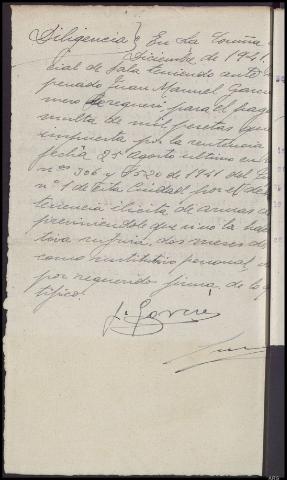 Diligencia } En La Coruña
Diciembre de 1941.
cial de Sala teniendo ante
penado Juan Manuel Garcí
mero le requerí para el pago
multa de mil pesetas que
impuesta por la sentencia
fecha 25 Agosto último en
nos 306 y 520 de 1941 del
nº 1 de Esta Ciudad por el de
tenencia ilícita de armas
previniendole que si no la hace
tiva sufrirá dos meses de
como sustitutivo personal,
por requerido firma, de lo q
tifico.
J. Garcia